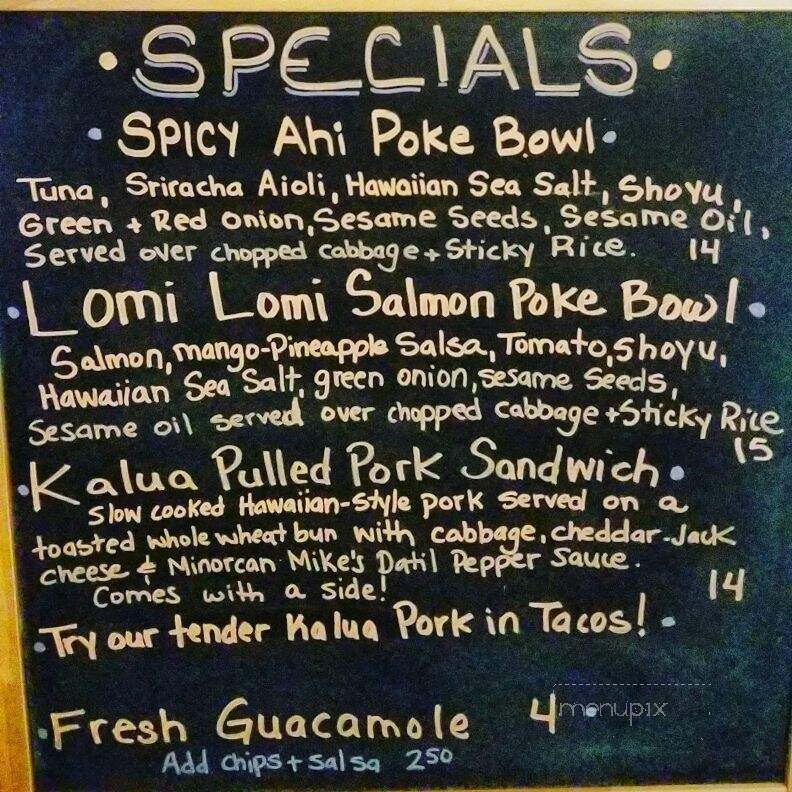 • SPECIALS •
• SPICY Ahi Poke Bowl •
Tuna, Sriracha Aioli, Hawaiian Sea Salt, Shoyu,
Green + Red onion, Sesame Seeds, Sesame Oil,
Served over chopped cabbage + Sticky Rice. 14
• Lomi Lomi Salmon Poke Bowl •
Salmon, mango-Pineapple Salsa, Tomato, shoyu,
Hawaiian Sea Salt, green onion, sesame seeds,
Sesame oil served over chopped cabbage + Sticky Rice
15
• Kalua Pulled Pork Sandwich •
Slow cooked Hawaiian-style pork served on a
toasted whole wheat bun with cabbage, cheddar-Jack
cheese & Minorcan Mike's Datil Pepper Sauce.
Comes with a side! 14
• Try our tender Kalua Pork in Tacos! •
• Fresh Guacamole 4
menupix
Add chips + salsa 250